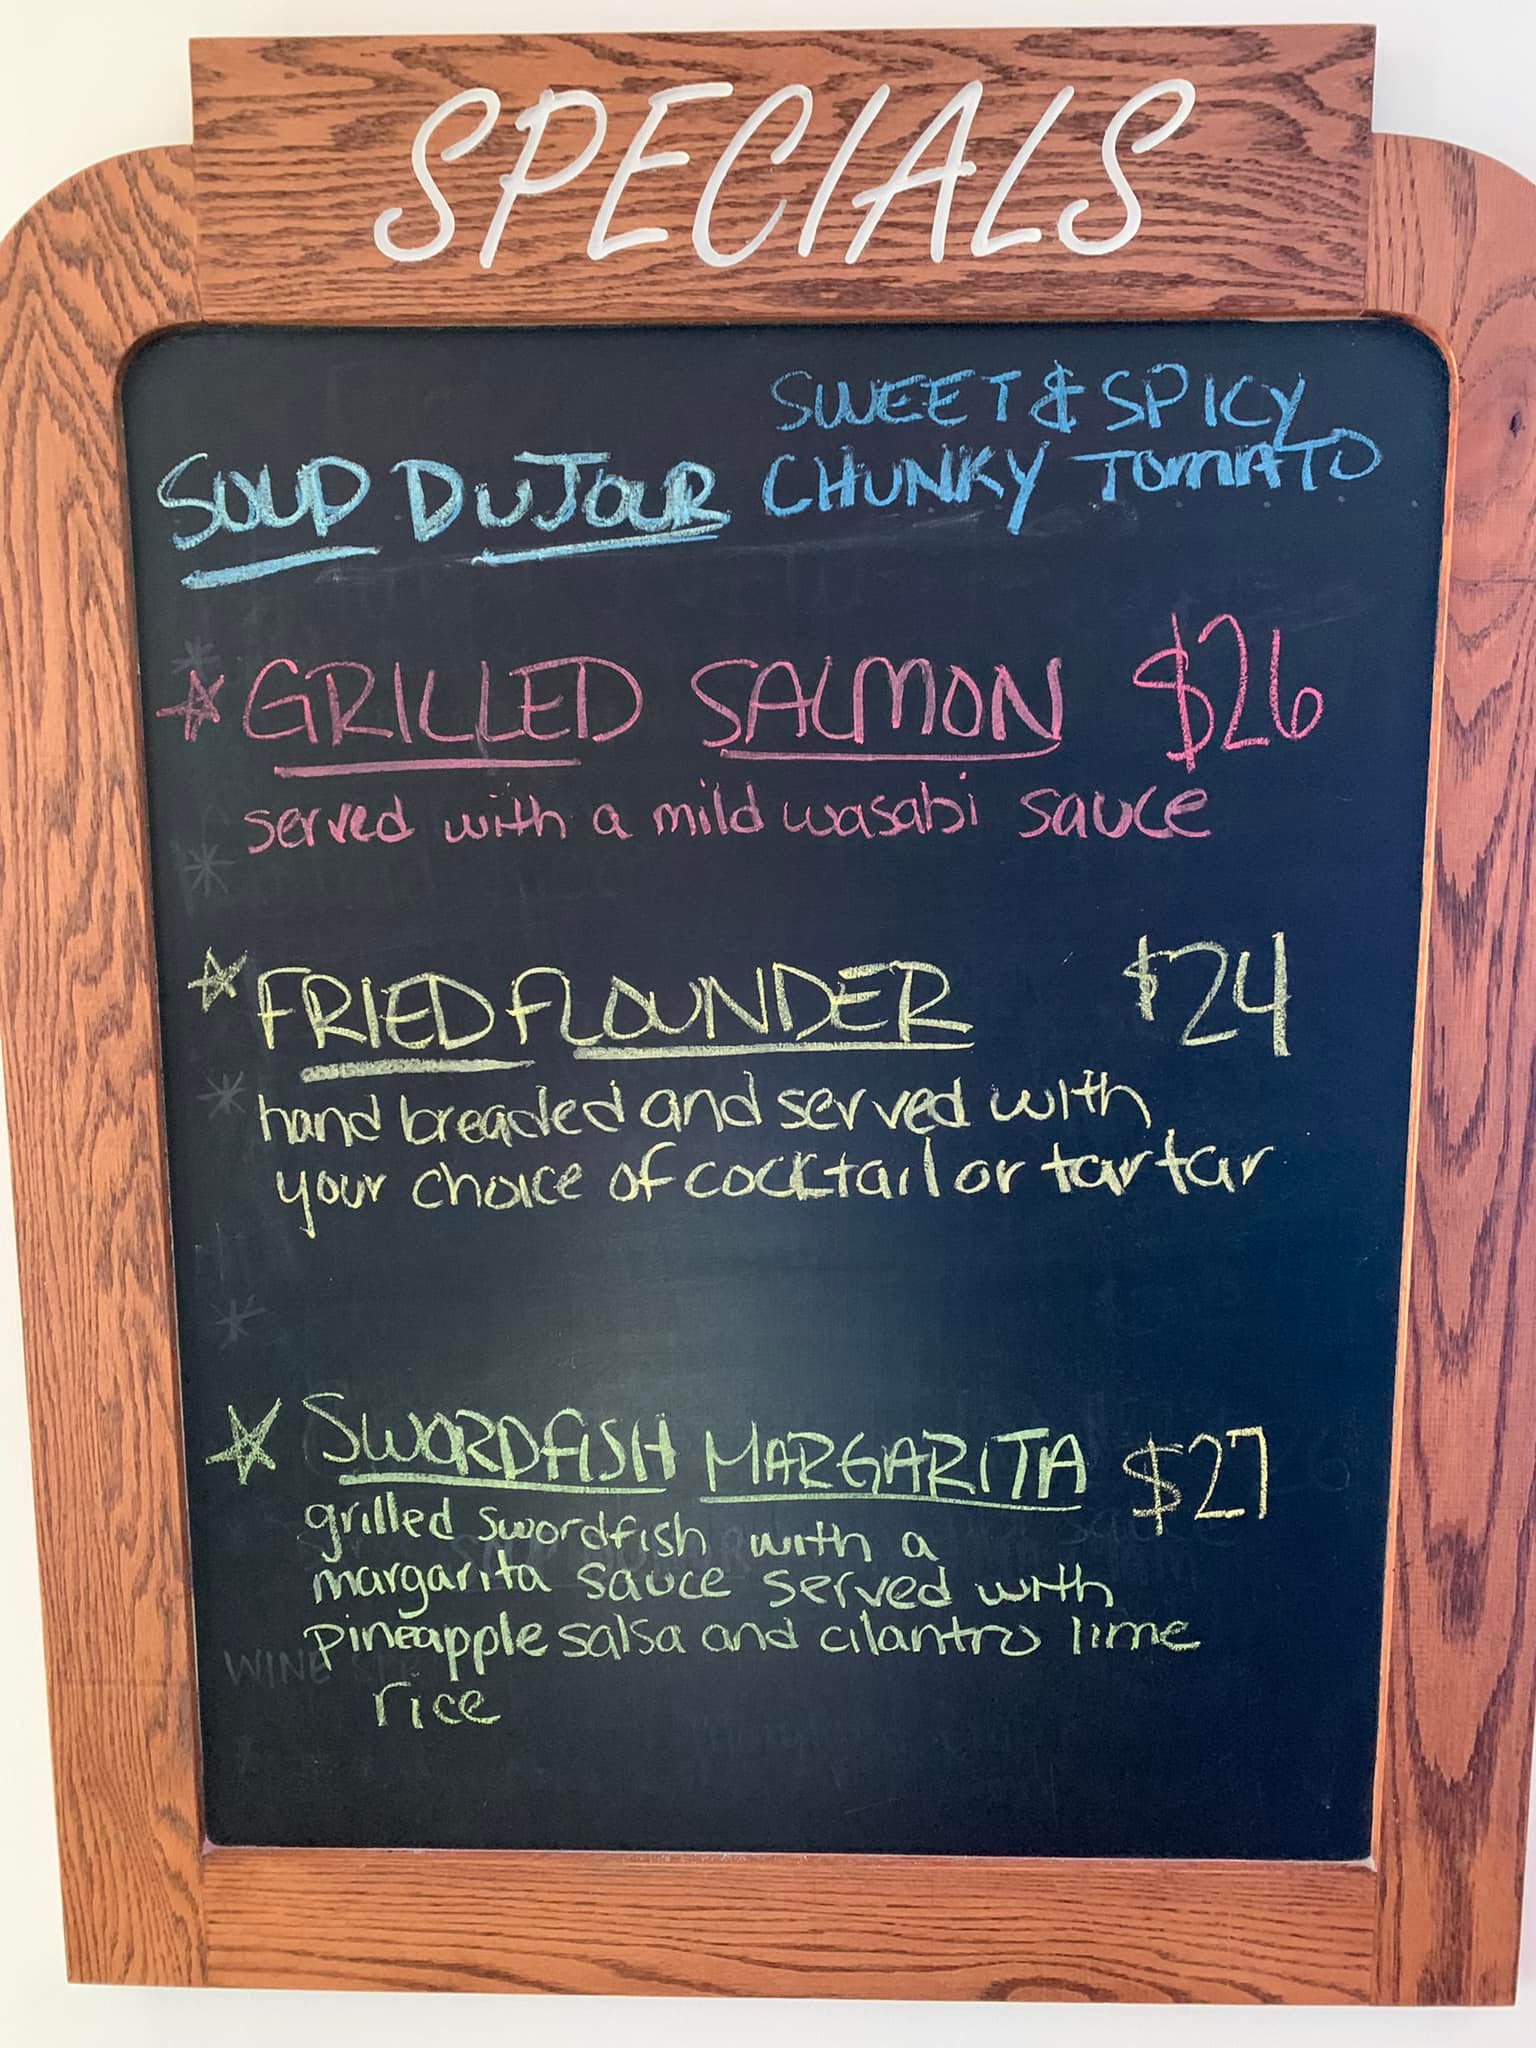 SPECIALS
SWEET & SPICY
SOUP DU JOUR CHUNKY TOMATO
GRILLED SALMON $26
served with a mild wasabi sauce
FRIED FLOUNDER $24
hand breaded and served with
your choice of cocktail or tartar
SWORDFISH MARGARITA $27
grilled swordfish with a
margarita sauce served with
pineapple salsa and cilantro lime
rice
WINE